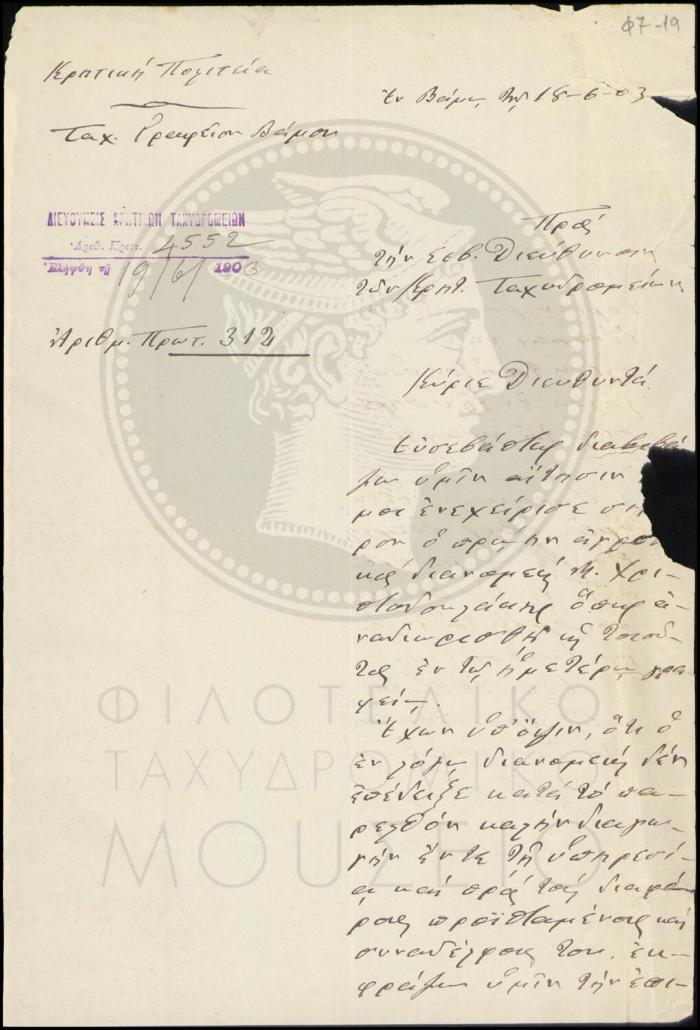 Φ7-19
Κρητική Πολιτεία
Ἐν Βάμῳ τῇ 18-6-03
Ταχ. Γραφεῖον Βάμου
ΔΙΕΥΘΥΝΣΙΣ ΚΡΗΤΙΚΩΝ ΤΑΧΥΔΡΟΜΕΙΩΝ
Ἀριθ. Πρωτ. 4552
Ἐλήφθη τῇ 19/6/1903
Πρὸς
τὴν Σεβ. Διεύθυνσιν
τῶν Κρητ. Ταχυδρομείων
Ἀριθμ. Πρωτ. 312
Κύριε Διευθυντά.
Εὐσεβάστως διαβιβά
ζω ὑμῖν αἴτησιν
μοι ἐνεχείρισε σή
ρον ὁ πρώην ἀγρο
κὸς διανομεὺς Μ. Χρι-
στοδουλάκης ὅπως ἀ-
ναδιορισθῇ ὡς τοιοῦ-
τος ἐν τῷ ἡμετέρῳ γρα-
φείῳ.
Ἔχων ὑπ' ὄψιν, ὅτι ὁ
ἐν λόγῳ διανομεὺς δὲν
ἐπέδειξε κατὰ τὸ πα-
ρελθὸν καλὴν διαγω-
γὴν ἔν τε τῇ ὑπηρεσί-
ᾳ καὶ πρὸς τοὺς διαφό-
ρους προϊσταμένους καὶ
συναδέλφους του, ἐκ-
φράζω ὑμῖν τὴν ἐπι-
ΦΙΛΟΤΕΛΙΚΟ
ΤΑΧΥΔΡΟΜΙΚΟ
ΜΟΥΣΕΙΟ